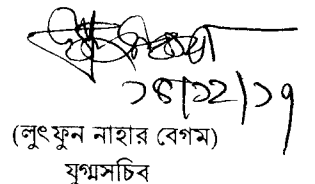 ১৪/১২/১৭
(লুৎফুন নাহার বেগম)
যুগ্মসচিব